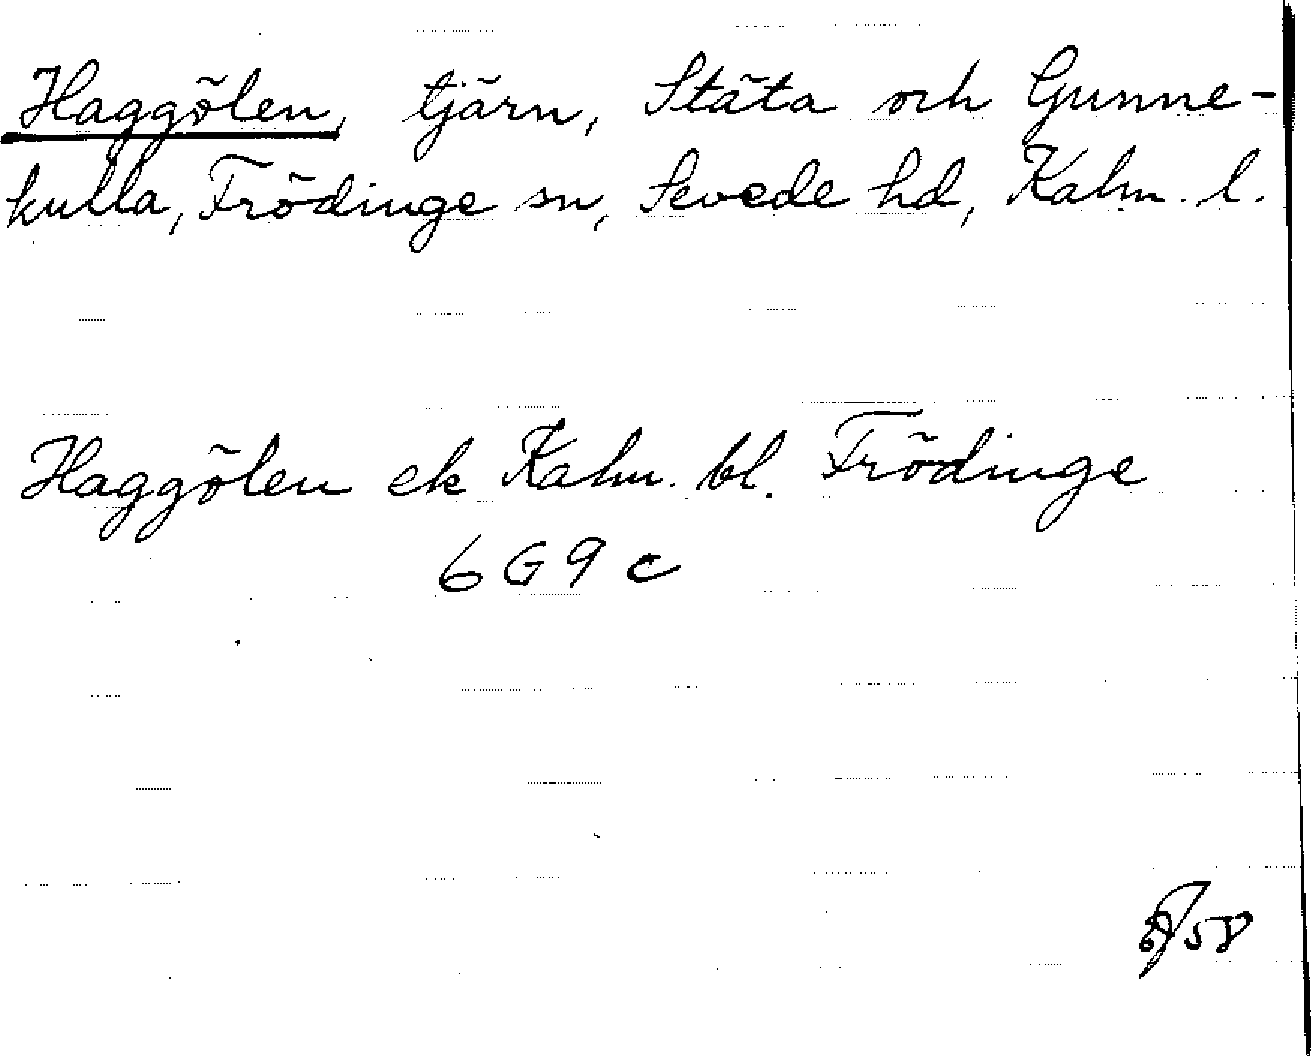 Haggölen, tjärn, Stäta och Gunne-
kulla, Frödinge sn, Sevede hd, Kalm. l.
Haggölen ek Kalm. bl. Frödinge
6G9c